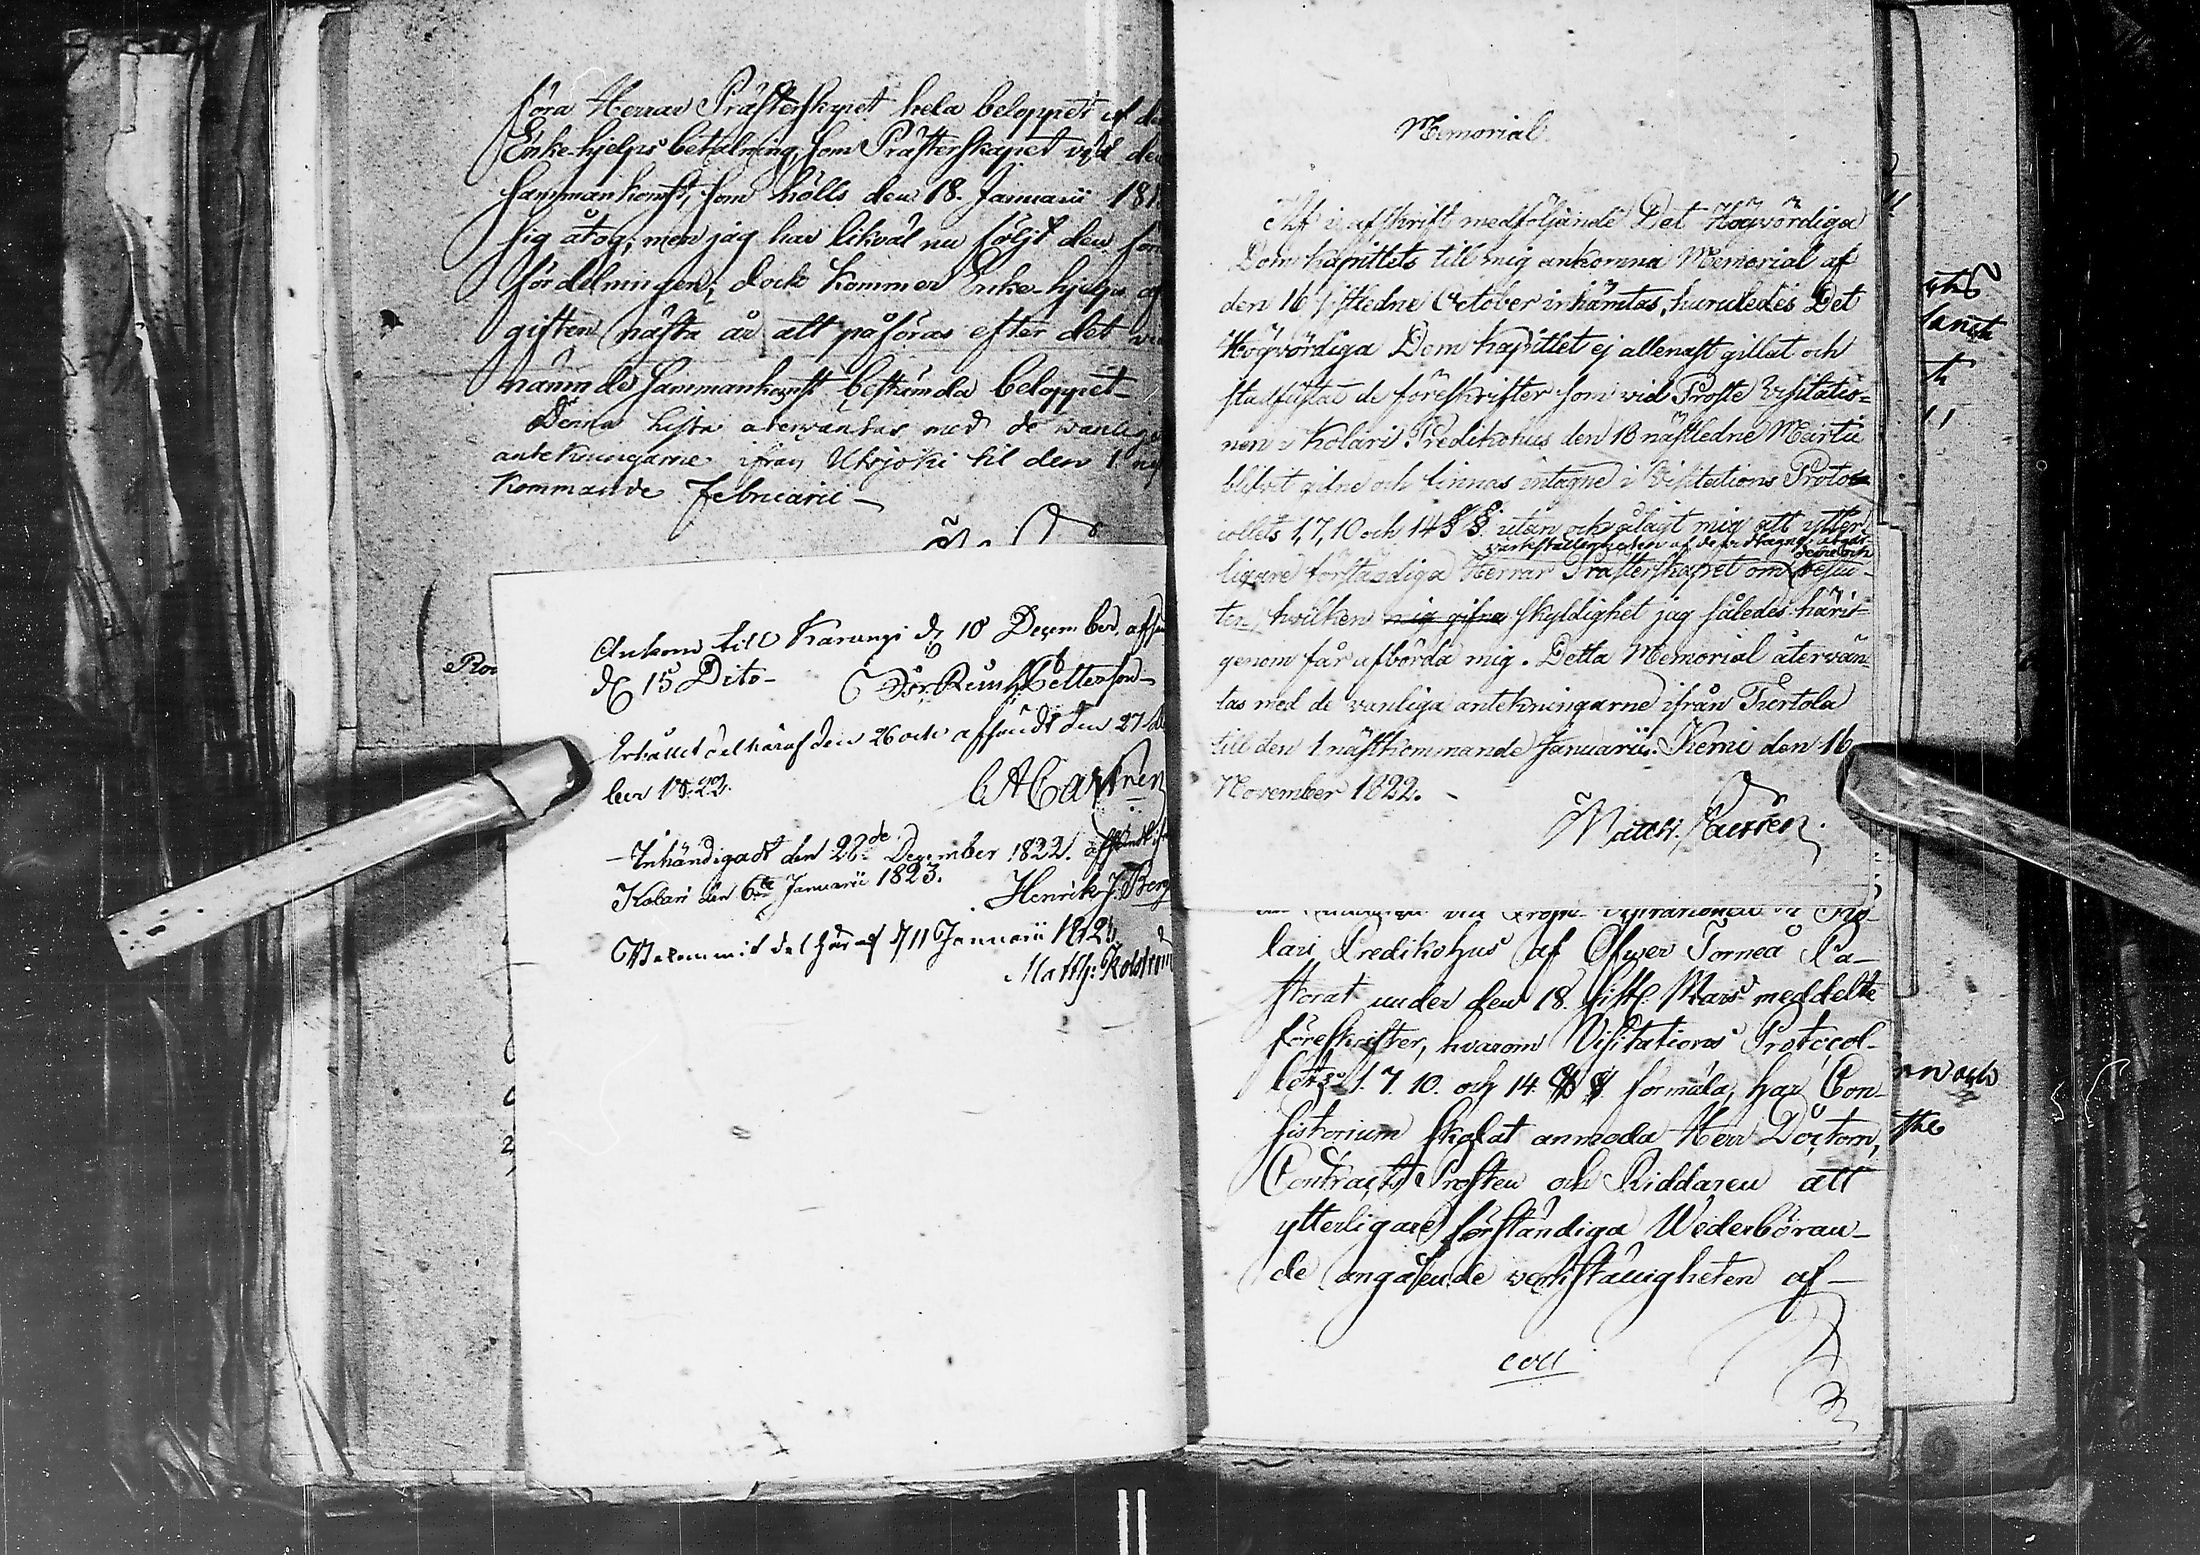 föra Herrar Prästerskapet hela beloppet af
Enke-hjelps betalning, som Prästerskapet vid
sammankomst, som hölls den 18. Januarii 181
sig åtog; men jag har likväl nu följt den
fördelningen; dock kommer Enke-hjelps af
giften nästa år att påföras efter det
nämnde sammankomst bestämda beloppet
Denna Lista återwäntas med de wanliga
antekningarne ifrån Utsjoki til den 1
kommande Februarii
Ankom till Karungi d. 10 December,
d. 15 Dito
Erhållit del häraf den 26 och afsändt den 27
ber 1822.
C A Castren
Inhändigadt den 28de December 1822. afsändt
Kolari den 6te Januarii 1823. Henrik J. Berg
del häraf d 11 Januarii 1823
Matth: Kolström
Memorial
Af i afskrift medföljande Det Högvördiga
Domkapittlets till mig ankomna Memorial af
den 16 sistledne October inhämtas, huruledes Det
Högvördiga Domkapittlet ej allenast gillat och
stadfästat de föreskrifter som vid Proste Visitatio=
nen i Kolari Predikohus den 18 nästledne Martii
blifvit gifne och finnas intagne i Visitations Proto=
collets 1, 7, 10 och 14 § §. utan ock ålagt mig att ytter
verkställigheten af de vidtagne
ligare förständiga Herrar Prästerskapet om beslu-
ten, hvilken mig gifna skyldighet jag således härige-
genom får afbörda mig. Detta Memorial återvän-
tas med de vanliga antekningarne ifrån Turtola
till den 1 nästkommande Januarii. Kemi den 16
November 1822.
Matth. Castrén.
lari Predikohus af Öfwer Torneå Pa-
storat under den 18. sistl. Mars meddelte
föreskrifter, hvarom Visitations Protocol-
lets 1. 7. 10. och 14. § §. förmäla, har Con-
sistorium skolat anmoda Herr Doctorn,
Contracts Prosten och Riddaren att
ytterligare förständiga Wederböran-
de angående verkställigheten af
coll